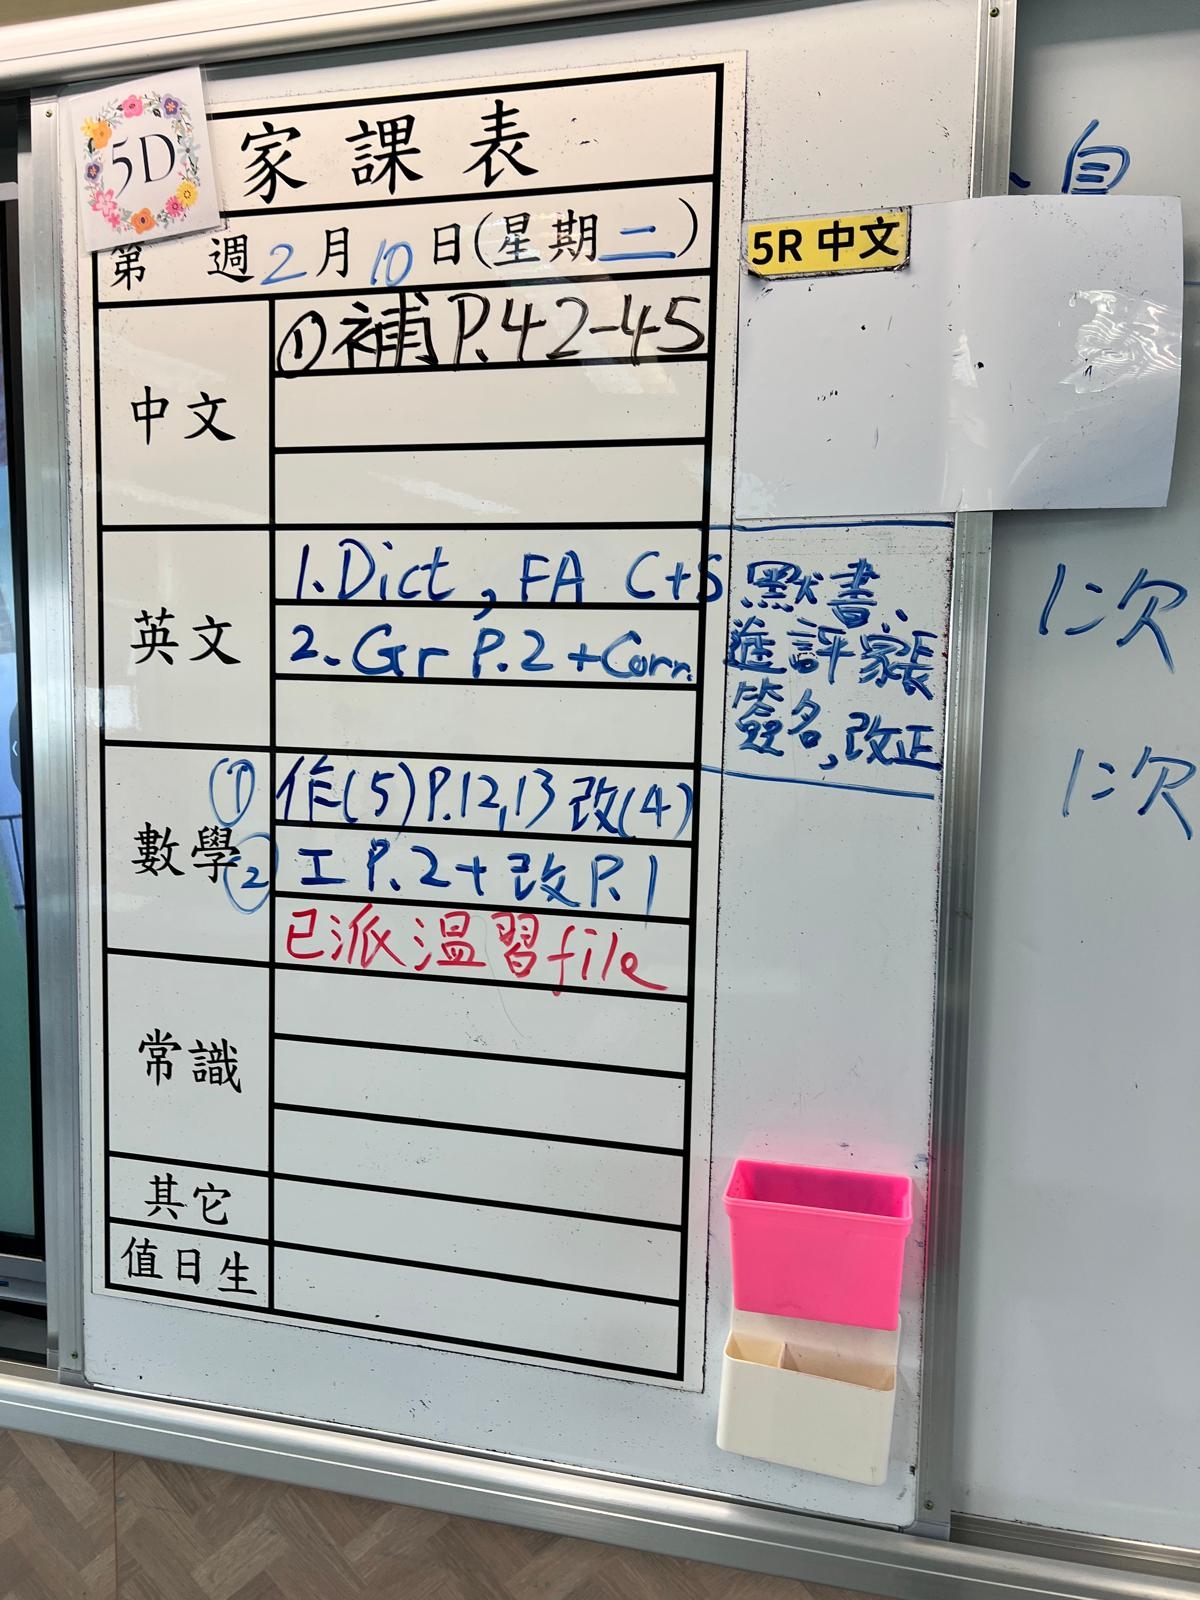 5D
家課表
第 週2月10日(星期二)
中文
①補P.42-45
英文
1.Dict, FA C+S
2.Gr P.2+Corr.
默書、
進評家長
簽名,改正
數學
① 作(5)P.12,13改(4)
② 工P.2+改P.1
已派溫習file
常識
其它
值日生
5R 中文
息
1:次
1:次